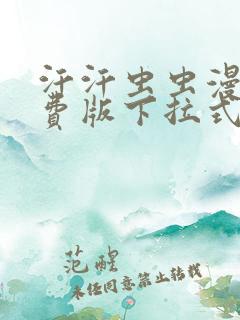 汗汗虫虫漫
费版下拉式
范醒
未经同意禁止转载